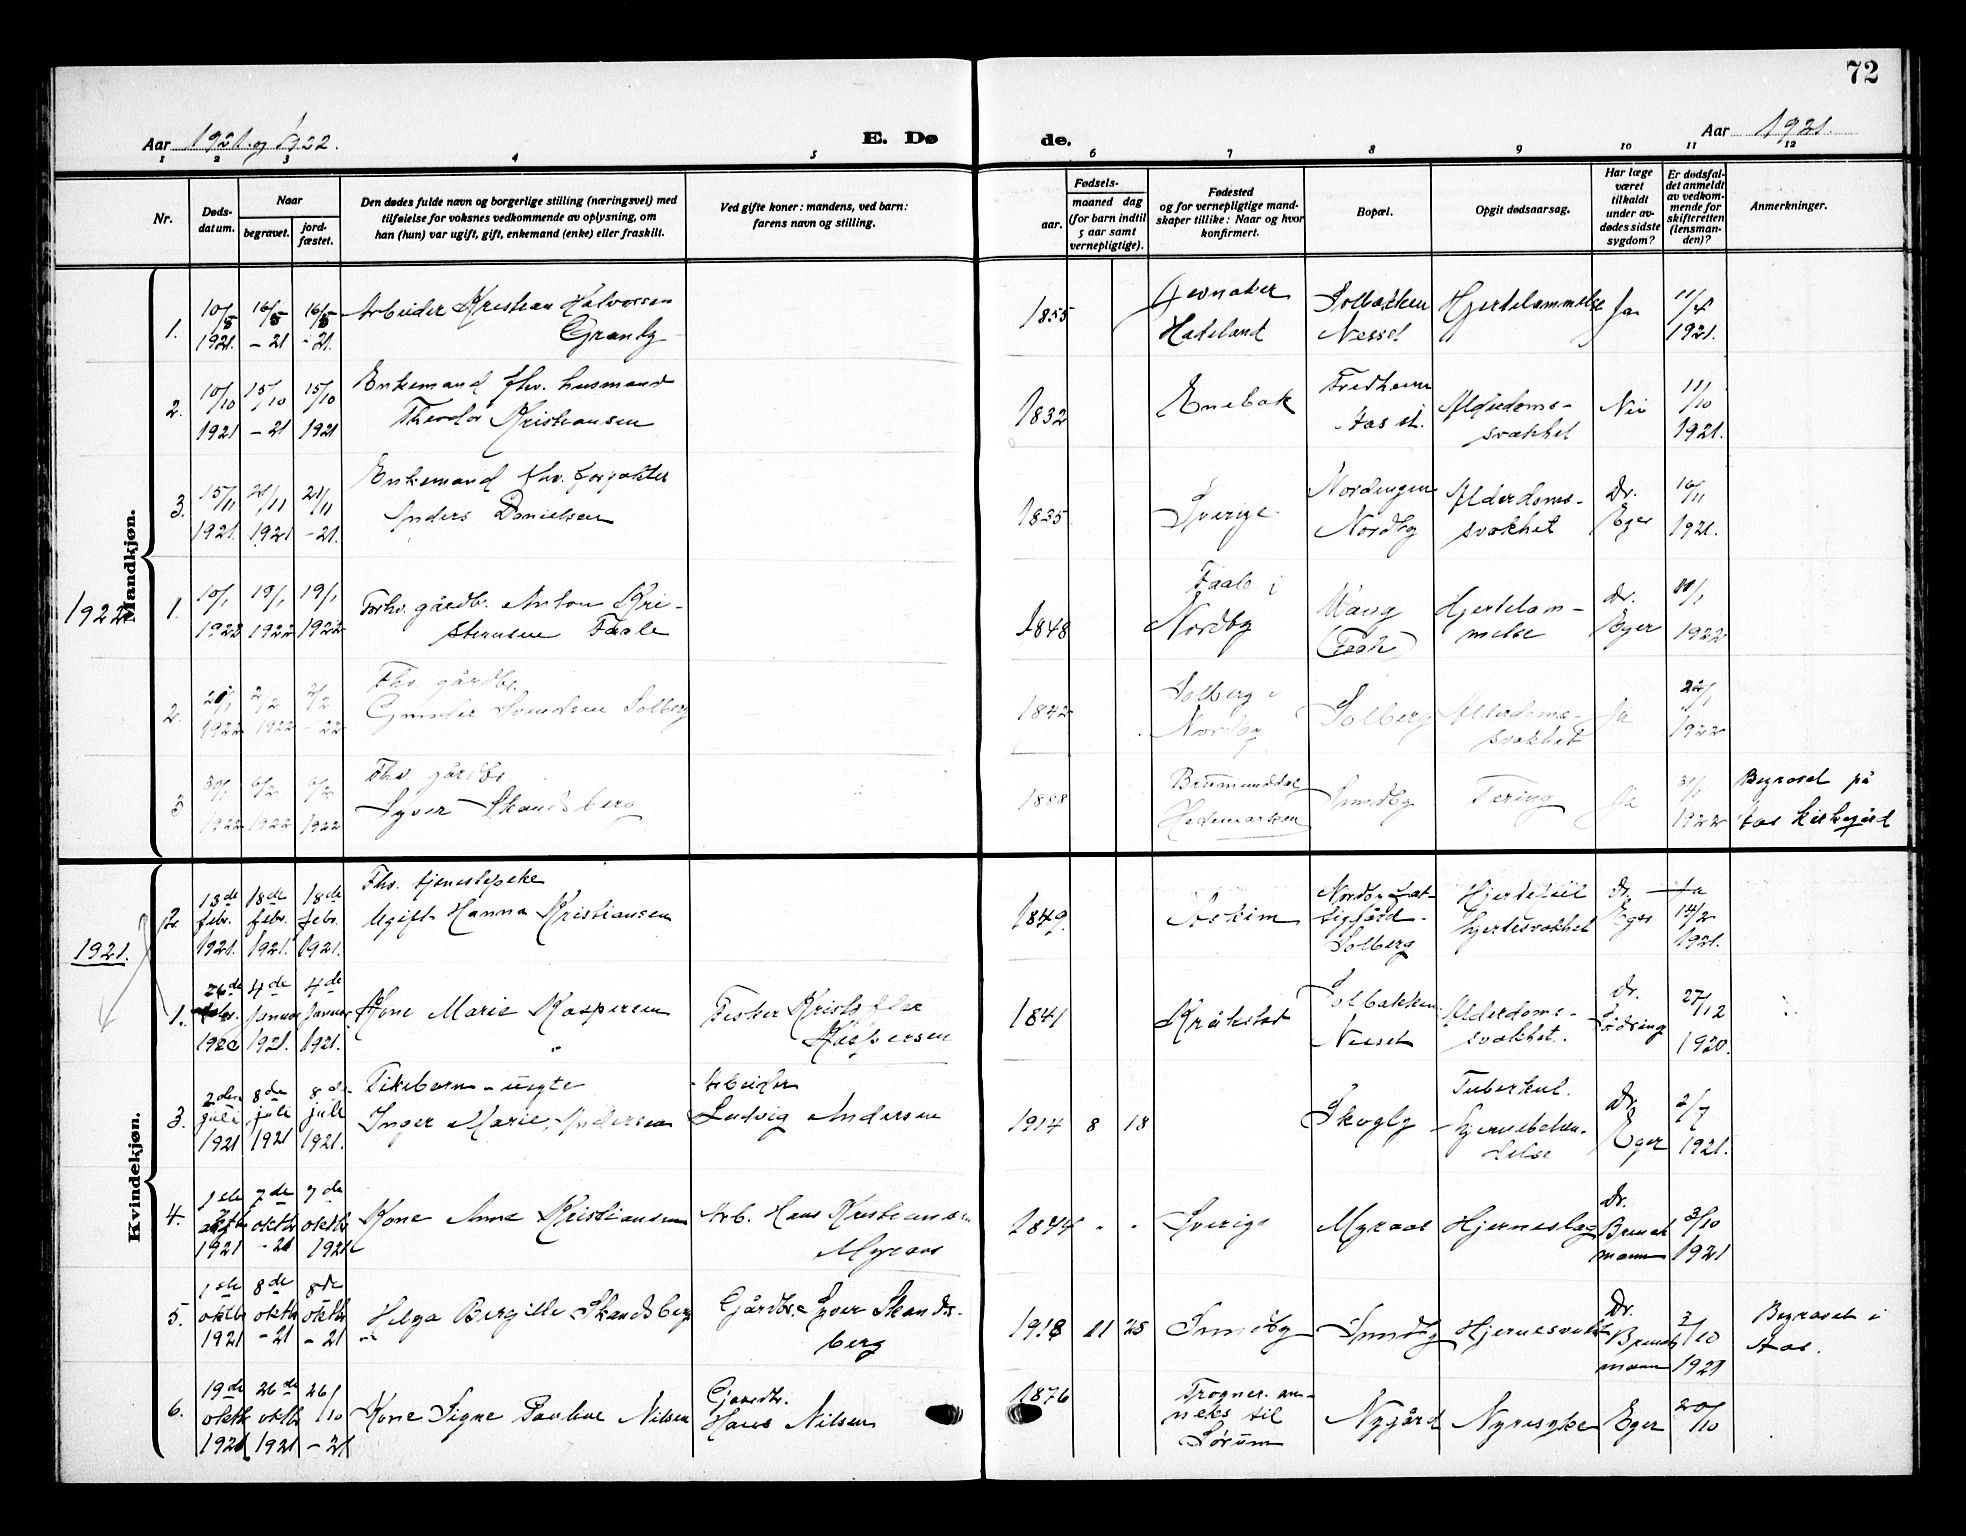 72
Aar 1921 og 1922.
E. Dø de.
Aar 1921.
1 2 3 4 5 6 7 8 9 10 11 12
Nr.
Døds-
datum.
Naar
begravet.
jord-
fæstet.
Den dødes fulde navn og borgerlige stilling (næringsvei) med
tilføielse for voksnes vedkommende av oplysning, om
han (hun) var ugift, gift, enkemand (enke) eller fraskilt.
Ved gifte koner: mandens, ved barn:
farens navn og stilling.
Fødsels-
aar.
maaned dag
(for barn indtil
5 aar samt
vernepligtige).
Fødested
og for vernepligtige mand-
skaper tillike: Naar og hvor
konfirmert.
Bopæl.
Opgit dødsaarsag.
Har læge
været
tilkaldt
under av-
dødes sidste
sygdom?
Er dødsfal-
det anmeldt
av vedkom-
mende for
skifteretten
(lensman-
den)?
Anmerkninger.
Mandkjøn.
1. 10/8 1921. 16/8 - 21 16/8 - 21.
Arbeider Kristian Halvorsen
Granly
1855
Jevnaker
Hadeland
Solbakken
Nesset
Hjertelammelse
Ja
11/8
1921.
2. 10/10 1921 15/10 - 21 15/10 1921
Enkemand fhv. husmand
Theodor Kristiansen
1832
Enebak
Fredheim
Aas st.
Alderdoms-
svakhet
Nei
11/10
1921.
3. 15/11 1921. 21/11 1921 21/11 - 21.
Enkemand fhv. forpakter
Anders Danielsen
1835
Sverige.
Nordengen
Nordby
Alderdoms-
svakhet
Dr.
Eger
16/11
1921.
1922
1. 10/1 1922 19/1 1922 19/1 1922
Forhv. gårdbr. Anton Kri-
stensen Faale
1848
Faale i
Nordby
Waug
(Faale)
Hjertelam-
melse
dr.
Eger
11/1
1922
2. 21/1 1922 2/2 1922 2/2 - 22
Fhv. gårdbr.
Gunder Svendsen Solberg
1842
Solberg i
Nordby
Solberg
Alderdoms-
svakhet
Ja
22/1
1922
3 30/1 1922 6/2 1922 6/2 1922
Fhv. gårdbr
Syver Skandsberg
1888
Brumunddal
Hedemarken
Sundby
Tæring
Ja
31/1
1922
Begravet på
Aas kirkegård
Kvindekjøn.
1921.
2. 13de febr. 1921. 18de febr. 1921. 18de febr. 1921.
Fhv. tjenestepike
Ugift Hanna Kristiansen
1849.
Askim
Nordby fat-
tiggård.
Solberg
Hjertefeil
hjertesvakhet
dr.
Eger
Ja
14/2
1921.
1. 26de 1920 4de Januar 1921. 4de Januar 1921.
Kone Marie Kaspersen
Fisker Kristoffer
Kaspersen
1841
Kråkstad
Solbakken
Nesset
Alderdoms-
svakhet.
Dr.
Sødring
27/12
1920.
3. 2den juli 1921 8de juli 1921 8de juli 1921.
Pikebarn - uegte
Inger Marie Andersen
Arbeider
Ludvig Andersen
1914 8 18
Skogly
Tuberkul.
hjernebeten-
delse
Dr.
Eger
2/7
1921.
4. 1ste oktbr 1921 7de oktbr - 21 7de oktbr 1921
Kone Anne Kristiansen
Arb. Hans Kristiansen
Myraas
1844 " "
Sverige
Myraas
Hjerneslag
Dr.
Brinch
mann
3/10
1921
5. 1ste oktbr 1921 8de oktbr - 21 8de oktbr - 21
Helga Bergitte Skandsberg
Gårdbr. Syver Skands-
berg
1918 11 25
Sundby
Sundby
Hjernesvulst
Dr.
Brinch
mann
3/10
1921
Begravet i
Aas.
6. 19de oktbr 1921 26de oktbr 1921 26/10 - 21
Kone Signe Pauline Nilsen
Gaardbr.
Hans Nilsen
1876
Frogner. an-
neks til
Sørum
Nygård
Nyresyke
Eger
20/10